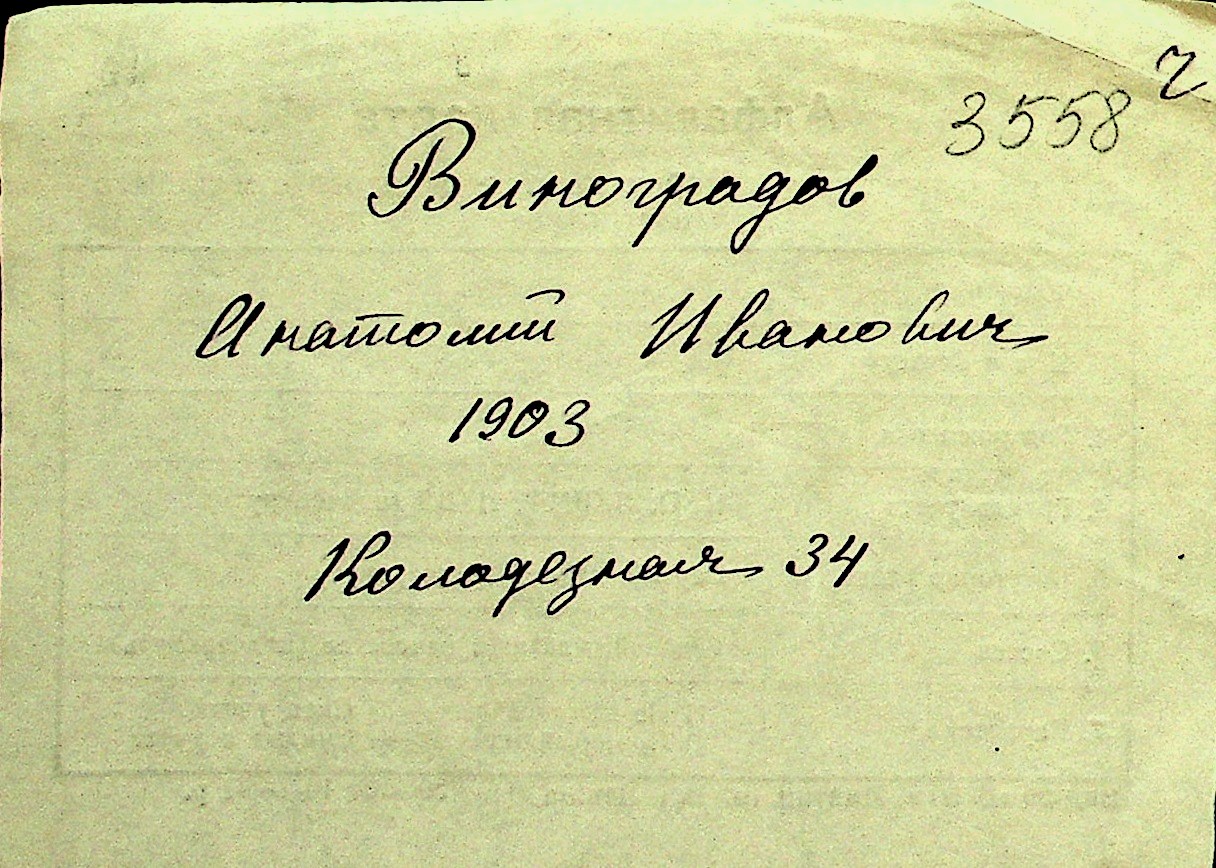 3558 ч
Виноградов
Анатолий Иванович
1903
Колодезная 34